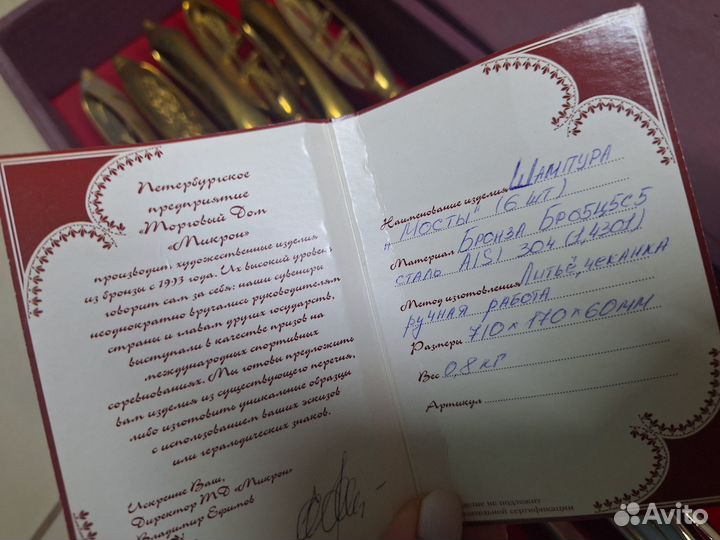 Петербургское
предприятие
«Торговый Дом
«Микрон»
производит художественные изделия
из бронзы с 1993 года. Их высокий уровень
говорит сам за себя: наши сувениры
неоднократно вручались руководителям
страны и главам других государств,
выступали в качестве призов на
международных спортивных
соревнованиях. Мы готовы предложить
вам изделия из существующего перечня,
либо изготовить уникальные образцы
с использованием ваших эскизов
или геральдических знаков.
Искренне Ваш,
Директор ТД «Микрон»
Владимир Ефимов
Наименование изделия Шампура
"Мосты" (6 шт.)
Материал Бронза БрО5Ц5С5
сталь AISI 304 (1,4301)
Метод изготовления Литьё, чеканка
ручная работа
Размеры 710×170×60мм
Вес 0,8 кг
Артикул
не подлежит
сертификации
Avito